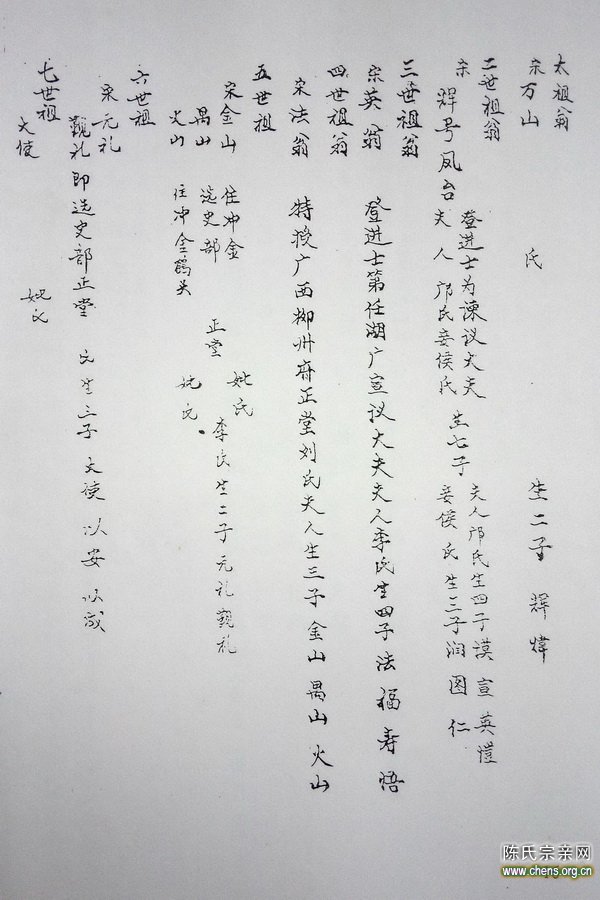 太祖翁
宋万山 氏 生二子 辉 炜
二世祖翁
宋 辉号凤台 登进士为谏议大夫 夫人邝氏妾侯氏 生七子 夫人邝氏生四子谟 宣 英 恺 妾侯氏生三子润 图 仁
三世祖翁
宋英翁 登进士第任湖广宣议大夫夫人李氏生四子法 福 寿 悟
四世祖翁
宋法翁 特授广西柳州府正堂刘氏夫人生三子金山 禺山 火山
五世祖
宋金山 住冲金 妣氏
禺山 选史部 正堂 李氏生二子元礼 觐礼
火山 住冲金鹤头 妣氏
六世祖
宋元礼
觐礼 即选史部正堂 氏生三子 文使 以安 以成
七世祖
文使 妣氏
陈氏宗亲网
www.chens.org.cn